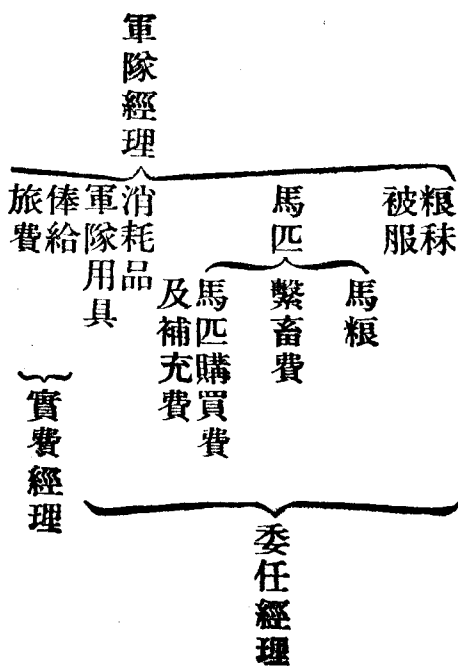 軍隊經理
粮秣
被服
馬匹
馬粮
繫畜費
馬匹購買費
及補充費
消耗品
軍隊用具
俸給
旅費
實費經理
委任經理